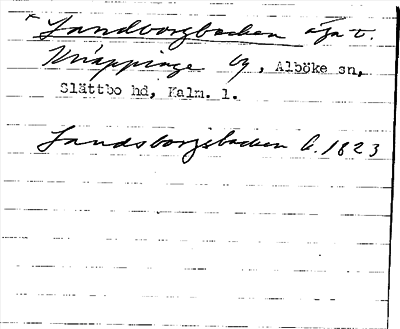 * Landborgbacken äga t.
Knäppinge by, Alböke sn,
Slättbo hd, Kalm. l.
Landsborgsbacken l. 1823